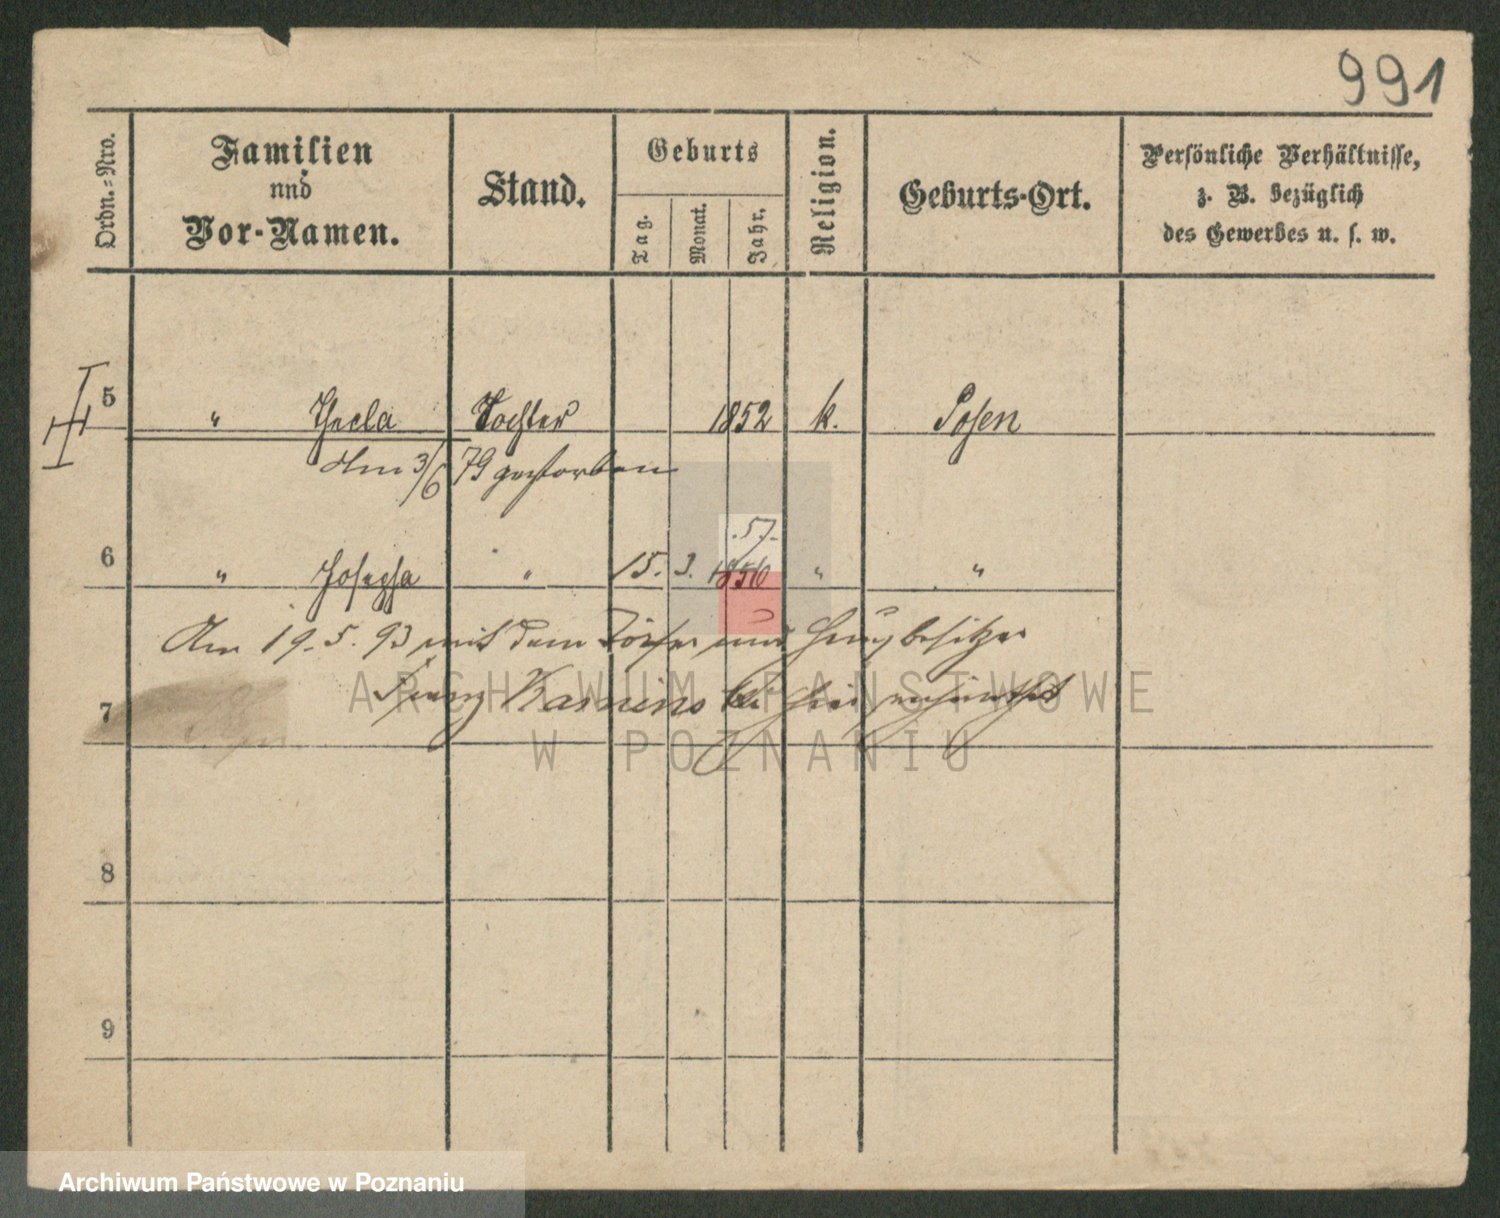 991
Ordn.-Nro.
Familien
und
Vor-Namen.
Stand.
Geburts
Tag.
Monat.
Jahr.
Religion.
Geburts-Ort.
Persönliche Verhältnisse,
z. B. bezüglich
des Gewerbes u. s. w.
5 " Thecla Tochter 1852 k. Posen
Am 3/6 79 gestorben
57.
6 " Josepha " 15. 3. 1856 " "
Am 19. 5. 93 mit dem und Hausbesitzer
Franz hier
7
8
9
ARCHIWUM PAŃSTWOWE
W POZNANIU
Archiwum Państwowe w Poznaniu